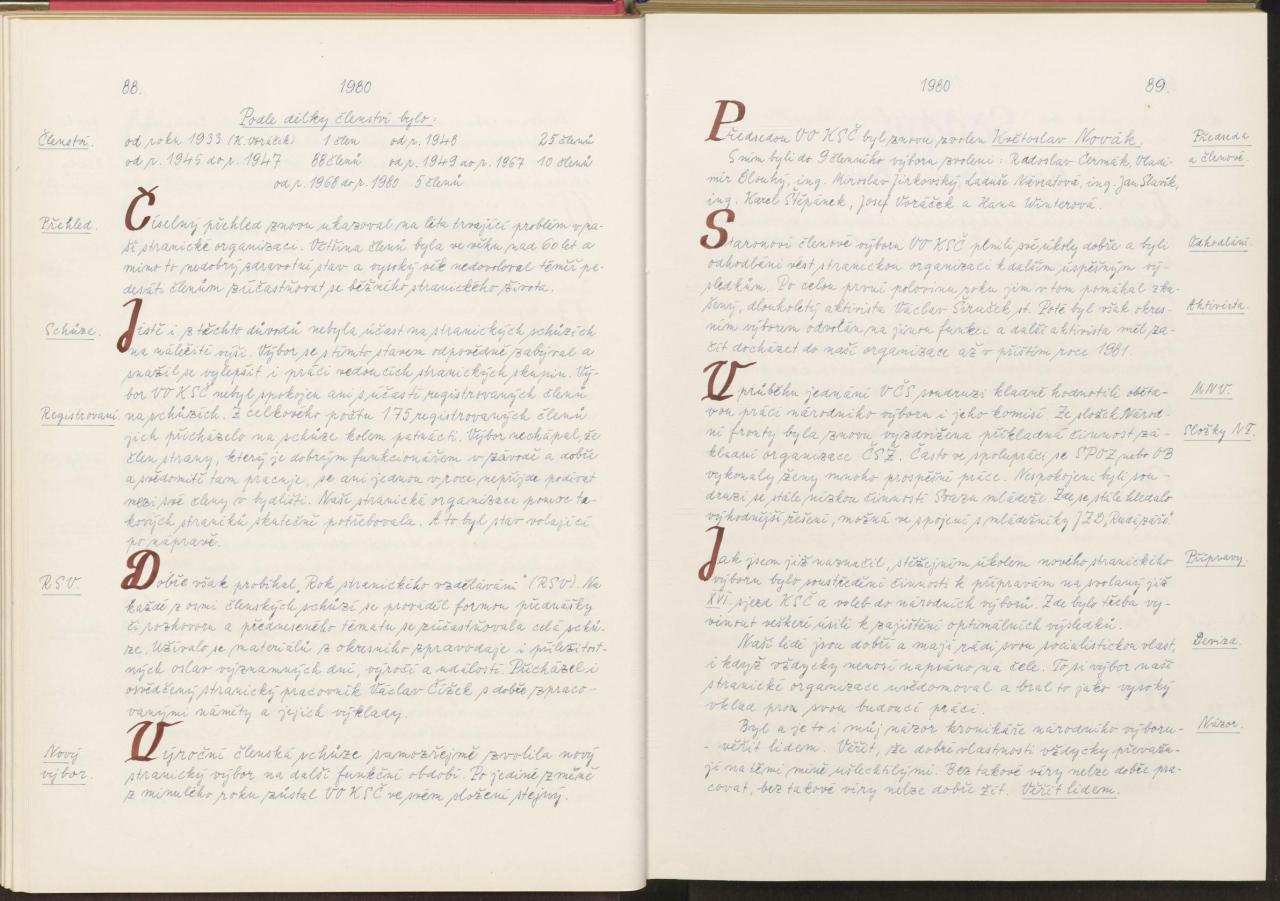 88. 1980
Podle délky členství bylo:
Členství. od roku 1933 (K. Voráček) 1 člen od r. 1948 25 členů
od r. 1945 do r. 1947 88 členů od r. 1949 do r. 1967 10 členů
od r. 1968 do r. 1980 5 členů
Přehled. Číselný přehled znovu ukazoval na léta trvající problém v na-
ší stranické organizaci. Většina členů byla ve věku nad 60 let a
mimo to nedobrý zdravotní stav a vysoký věk nedovoloval téměř pa-
desáti členům zúčastňovat se běžného stranického života.
Schůze. Jistě i z těchto důvodů nebyla účast na stranických schůzích
na náležité výši. Výbor se s tímto stavem odpovědně zabýval a
snažil se vylepšit i práci vedoucích stranických skupin. Vý-
bor VO KSČ nebyl spokojen ani s účastí registrovaných členů
Registrovaní. na schůzích. Z celkového počtu 175 registrovaných členů
jich přicházelo na schůze kolem patnácti. Výbor nechápal, že
člen strany, který je dobrým funkcionářem v závodě a dobře
a svědomitě tam pracuje, se ani jednou v roce nepřijde podívat
mezi své členy v bydlišti. Naše stranická organizace pomoc ta-
kových straníků skutečně potřebovala. A to byl stav volající
po nápravě.
R.S.V. Dobře však probíhal „Rok stranického vzdělávání" (RSV). Na
každé z osmi členských schůzí se prováděl formou přednášky
či rozhovoru a předneseného tématu se zúčastňovala celá schů-
ze. Užívalo se materiálů z okresního zpravodaje i příležitost-
ných oslav významných dní, výročí a událostí. Přicházel i
osvědčený stranický pracovník Václav Čížek s dobře zpraco-
vanými náměty a jejich výklady.
Nový Výroční členská schůze samozřejmě zvolila nový
výbor. stranický výbor na další funkční období. Po jediné změně
z minulého roku zůstal VO KSČ ve svém složení stejný.
1980 89.
Předsedou VO KSČ byl znovu zvolen Květoslav Novák. Předseda
S ním byli do 9 členného výboru zvoleni: Radoslav Čermák, Vladi- a členové.
mír Dlouhý, ing. Miroslav Jirkovský, Laduše Návratová, ing. Jan Slavík,
ing. Karel Štěpánek, Josef Voráček a Hana Winterová.
Staronoví členové výboru VO KSČ plnili své úkoly dobře a byli Odhodlání.
odhodláni vést stranickou organizaci k dalším úspěšným vý-
sledkům. Po celou první polovinu roku jim v tom pomáhal zku-
šený, dlouholetý aktivista Václav Širuček st. Poté byl však okres- Aktivista.
ním výborem odvolán na jinou funkci a další aktivista měl za-
čít docházet do naší organizace až v příštím roce 1981.
V průběhu jednání VČS soudruzi kladně hodnotili oběta- MNV.
vou práci národního výboru i jeho komisí. Ze složek Národ-
ní fronty byla znovu vyzdvižena příkladná činnost zá- Složky NF.
kladní organizace ČSŽ. Často ve spolupráci se SPOZ, nebo OB
vykonaly ženy mnoho prospěšné práce. Nespokojeni byli sou-
druzi se stále nízkou činností Svazu mládeže. Zde se stále hledalo
výhodnější řešení, možná ve spojení s mládežníky JZD „Rudá záře".
Jak jsem již naznačil, stěžejním úkolem nového stranického Přípravy.
výboru bylo soustředění činnosti k přípravám na svolaný již
XVI. sjezd KSČ a voleb do národních výborů. Zde bylo třeba vy-
vinout veškeré úsilí k zajištění optimálních výsledků.
Naši lidé jsou dobří a mají rádi svou socialistickou vlast, Deviza.
i když vždycky nenosí napsáno na čele. To si výbor naší
stranické organizace uvědomoval a bral to jako vysoký
vklad pro svou budoucí práci.
Byl a je to i můj názor kronikáře národního výboru - Názor.
- věřit lidem. Věřit, že dobré vlastnosti vždycky převažu-
jí nad těmi méně ušlechtilými. Bez takové víry nelze dobře pra-
covat, bez takové víry nelze dobře žít. Věřit lidem.